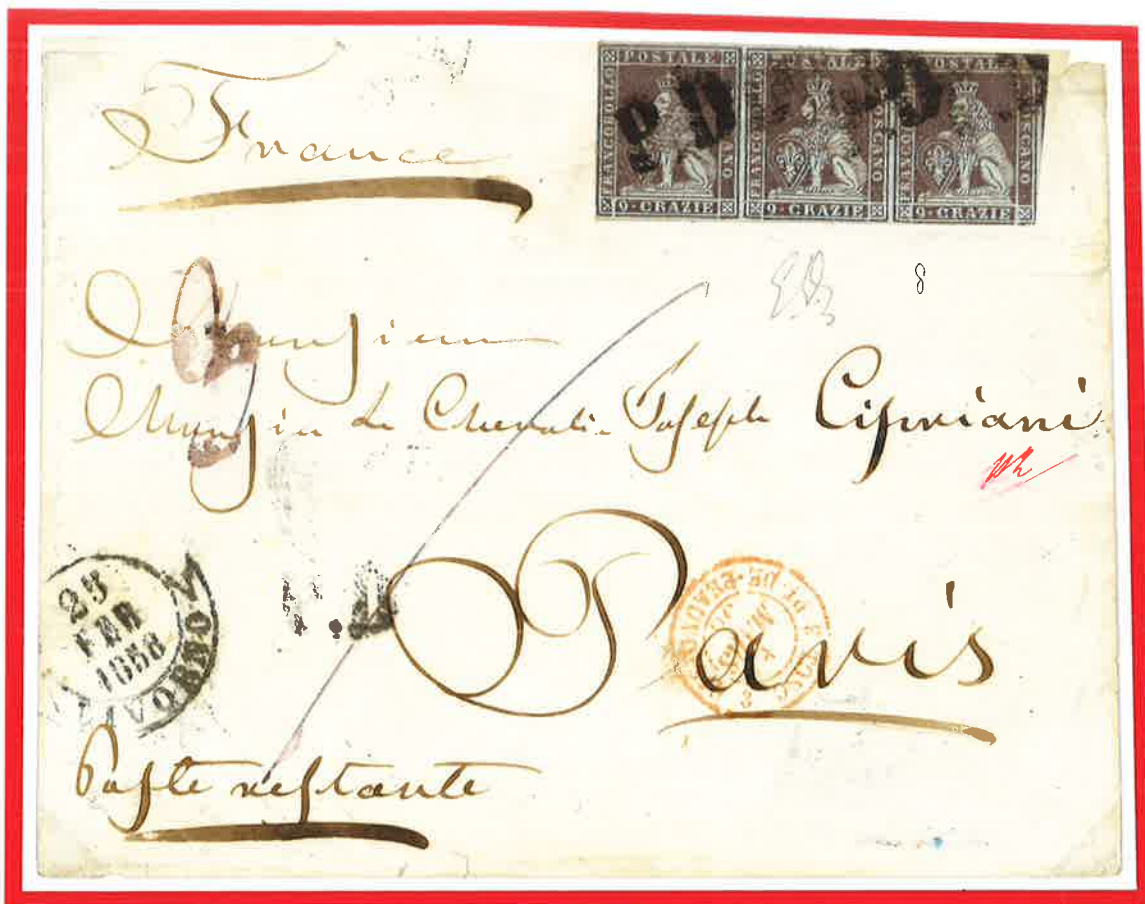 France
FRANCOBOLLO POSTALE TOSCANO 9 · CRAZIE
FRANCOBOLLO POSTALE TOSCANO 9 · CRAZIE
FRANCOBOLLO POSTALE TOSCANO 9 · CRAZIE
P D
8
Monsieur
Monsieur Le Chevalier Joseph Cipriani
Paris
LIVORNO
FEB
Poste restante